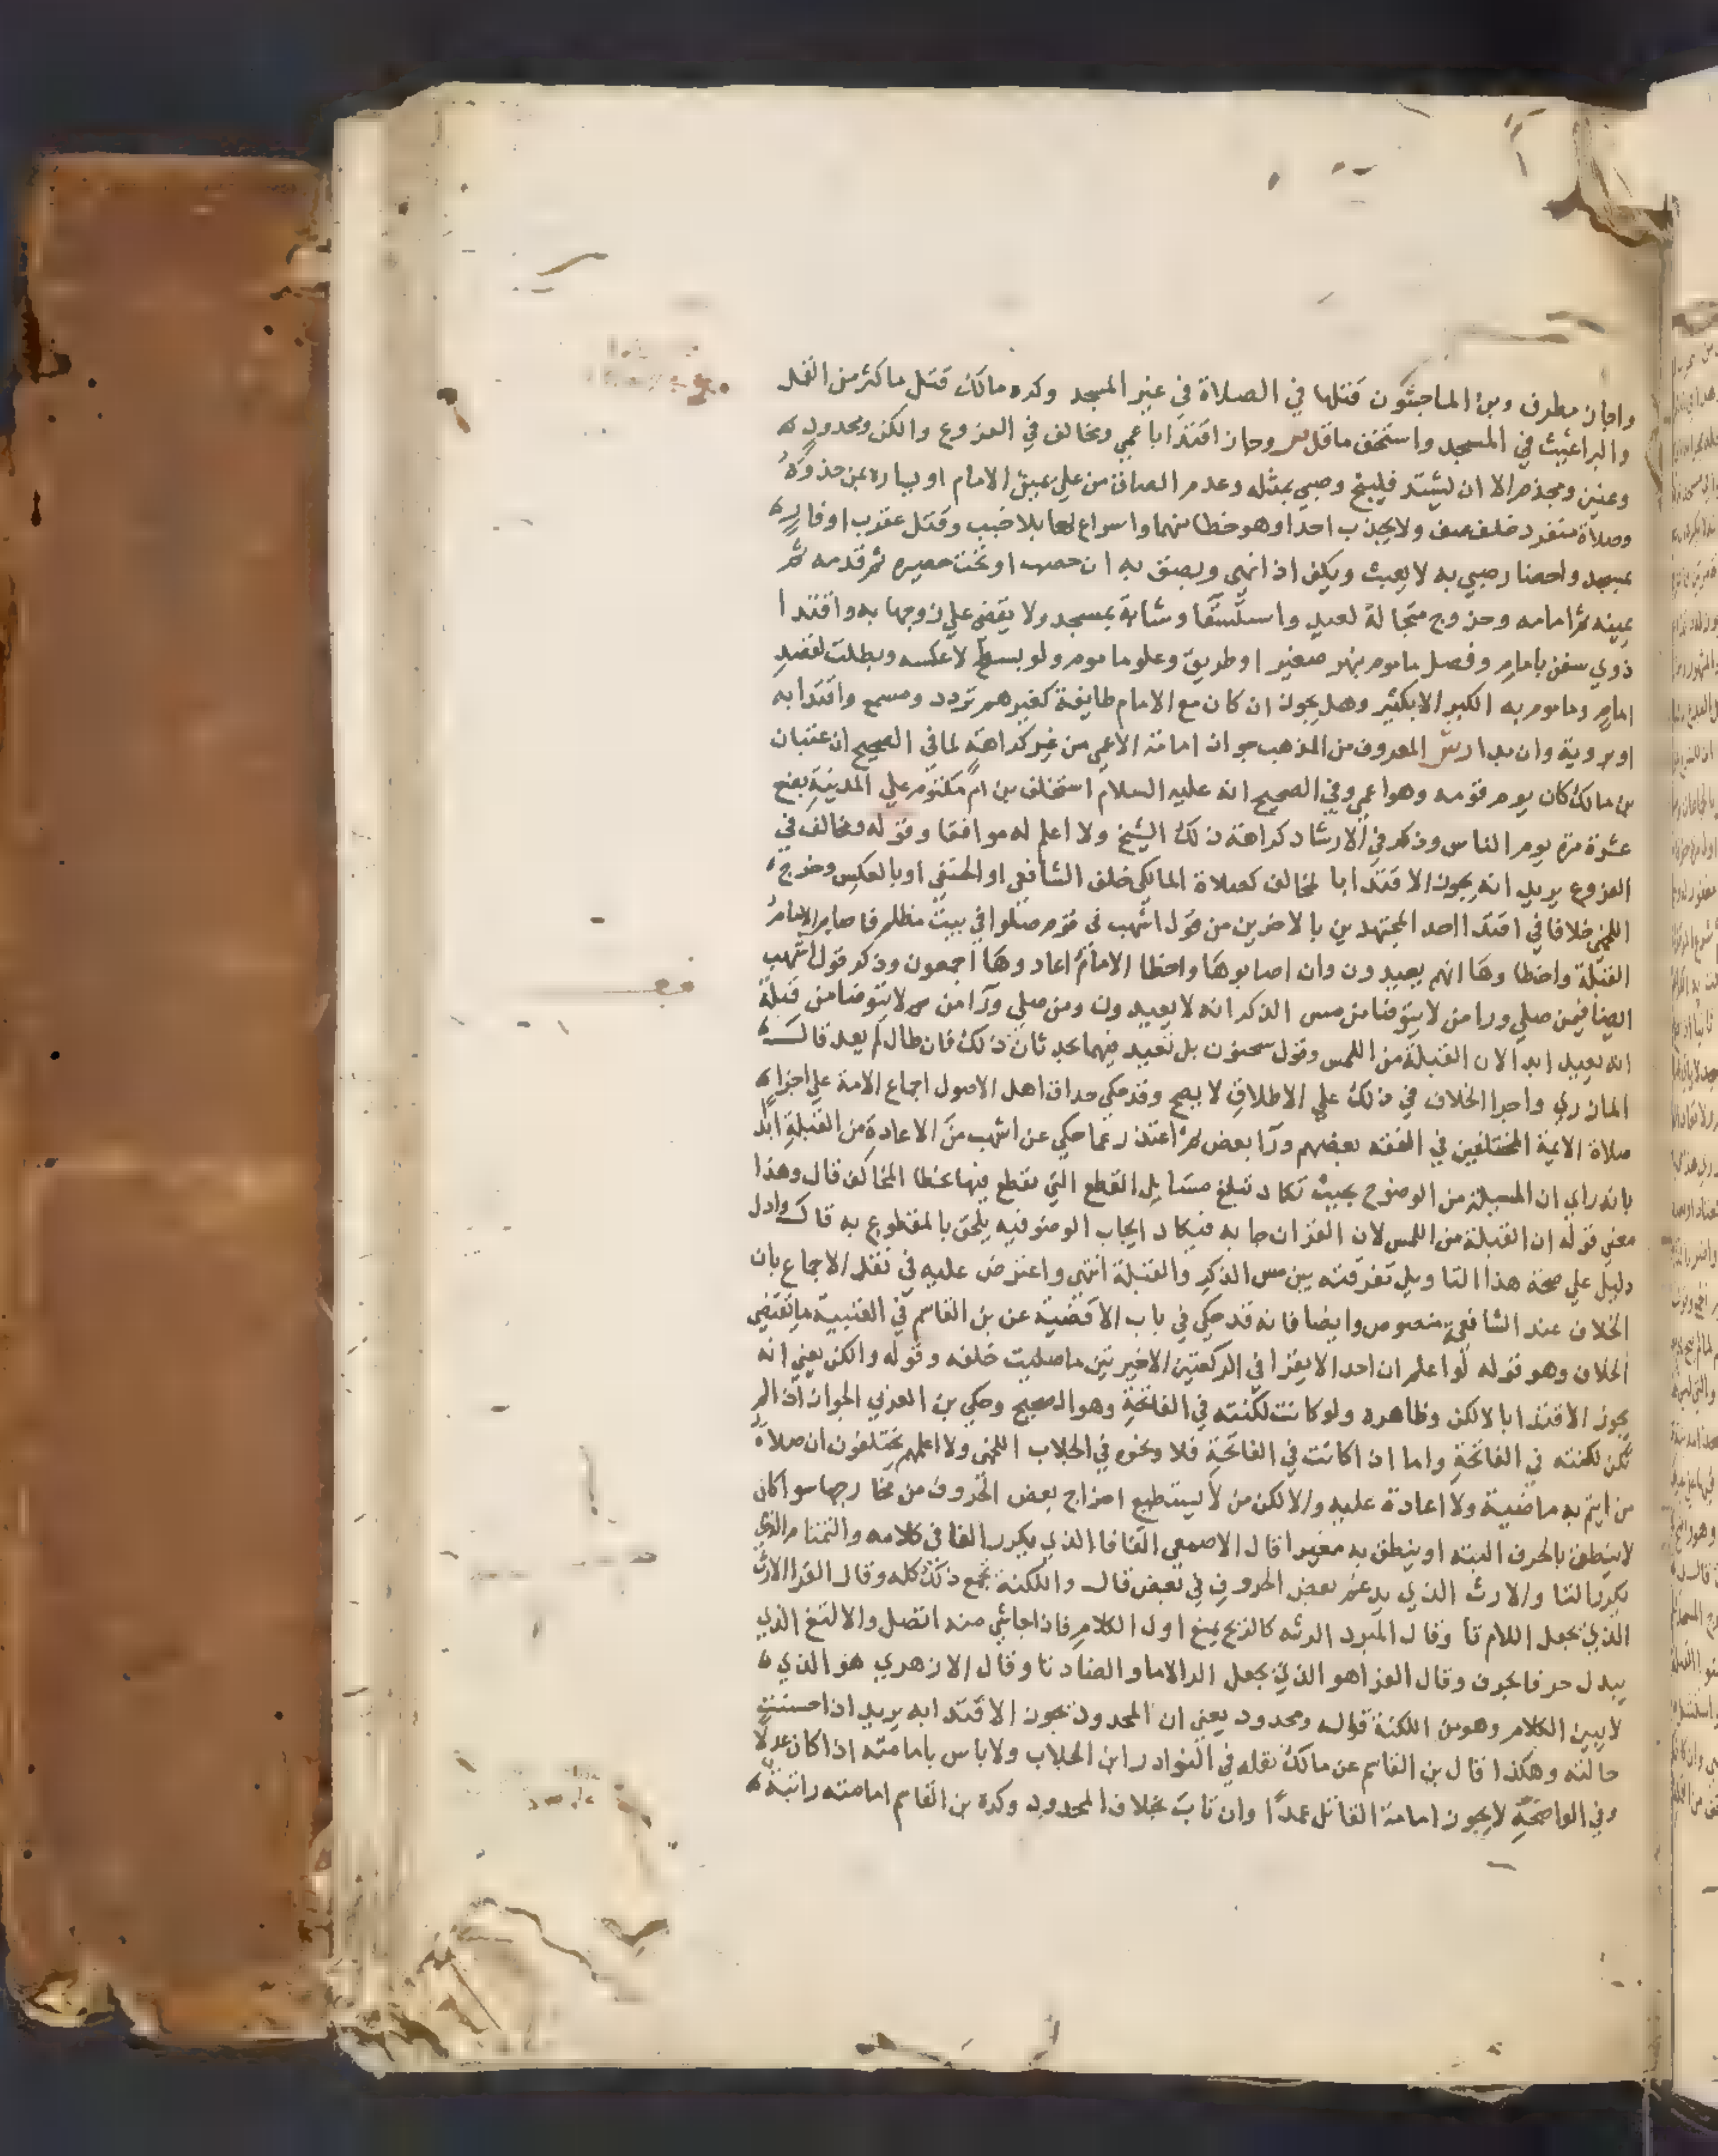 واجاز مطرف وبن الماجشون قتلها في الصلاة في غير المسجد وكره مالك قتل ماكثر من القمل
والبراغيث في المسجد واستخف ماقل ص وجاز اقتدا باعمي ومخالف في الفروع والكن ومحدود
وعنين ومجذم الا ان يشتد فلينح وصبي بمثله وعدم الصاق من علي يمين الامام او يساره بمن حذوه
وصلاة منفرد خلف صف ولا يجذب احدا وهو خطا منهما واسراع لها بلا خبب وقتل عقرب او فار
بمسجد واحضار صبي به لا يعبث ويكف اذا نهي وبصق به ان حصب او تحت حصيره ثم قدمه ثم
يمينه ثم امامه وخروج متجالة لعيد واستسقا وشابة بمسجد ولا يقضي علي زوجها به واقتدا
ذوي سفن بامام وفصل ماموم بنهر صغير او طريق وعلو ماموم ولو بسطح لا عكسه وبطلت لقصد
امام وماموم به الكبر الا بكثير وهل يجوز ان كان مع الامام طايفة كغيرهم تردد ومسمع واقتدا به
او بروية وان بدار ش المعروف من المذهب جواز امامة الاعمي من غير كراهة لما في الصحيح ان عتبان
بن مالك كان يوم قومه وهو اعمي وفي الصحيح انه عليه السلام استخلف بن ام مكتوم علي المدينة بضع
عشرة مرة يوم الناس وذكر في الارشاد كراهة ذلك الشيخ ولا اعلم له موافقا وقوله ومخالف في
الفروع يريد انه يجوز الاقتدا با لمخالف كصلاة المالكي خلف الشافعي او الحنفي او بالعكس وخرج
اللخمي خلافا في اقتدا احد المجتهدين بالاخرين من قول اشهب في قوم صلوا في بيت مظلم فاصاب الامام
القبلة واخطا وها انهم يعيدون وان اصابوها واخطا الامام اعادوها اجمعون وذكر قول اشهب
ايضا فيمن صلي ورا من لا يتوضا من مس الذكر انه لا يعيدون ومن صلي ورا من لا يتوضا من قبلة
انه يعيد ابدا لان القبلة من اللمس وقول سحنون بل تعيد فيهما بحدثان ذلك فان طال لم يعد قال
المازري واجرا الخلاف في ذلك علي الاطلاق لا يصح وقد حكي حذاق اهل الاصول اجماع الامة علي اجزا
صلاة الايمة المختلفين في الفقه بعضهم ورا بعض ثم اعتذر عما حكي عن اشهب من الاعادة من القبلة ابدا
بانه راي ان المسيلة من الوضوح بحيث تكاد تبلغ مسايل القطع التي نقطع فيها بخطا المخالف قال وهذا
معني قوله ان القبلة من اللمس لان القران جا به فيكاد ايجاب الوضو فيه يلحق بالمقطوع به قال وادل
دليل علي صحة هذا التاويل تفرقته بين مس الذكر والقبلة انتهي واعترض عليه في نقل الاجماع بان
الخلاف عند الشافعية منصوص وايضا فانه قد حكي في باب الاقضية عن بن القاسم في العتبية مايقتضي
الخلاف وهو قوله لو اعلم ان احدا لا يقرا في الركعتين الاخيرتين ماصليت خلفه وقوله والكن يعني انه
يجوز الاقتدا بالالكن وظاهره ولو كانت لكنته في الفاتحة وهو الصحيح وحكي بن العربي الجواز اذا لم
تكن لكنته في الفاتحة واما اذا كانت في الفاتحة فلا ونحوه في الجلاب اللخمي ولا اعلمهم يختلفون ان صلاة
من ايتم به ماضية ولا اعادة عليه والالكن من لا يستطيع اخراج بعض الحروف من مخارجها سوا كان
لا ينطق بالحرف البتة او ينطق به مغيرا قال الاصمعي الفافا الذي يكرر الفا في كلامه والتمتام الذي
يكرر التا والارث الذي يدغم بعض الحروف في بعض قال واللكنة تجمع ذلك كله وقال الفرا الارث
الذي يجعل اللام تا وقال المبرد الرته كالريح يمنع اول الكلام فاذا جا شي منه اتصل والالثغ الذي
يبدل حرفا بحرف وقال الفرا هو الذي يجعل الرالاما والصاد ثا وقال الازهري هو الذي
لا يبين الكلام وهو من اللكنة قوله ومحدود يعني ان المحدود يجوز الاقتدا به يريد اذا حسنت
حالته وهكذا قال بن القاسم عن مالك نقله في النوادر ابن الجلاب ولا باس بامامته اذا كان عدلا
وفي الواضحة لا يجوز امامة القاتل عمدا وان تاب بخلاف المحدود وكره بن القاسم امامته راتبة